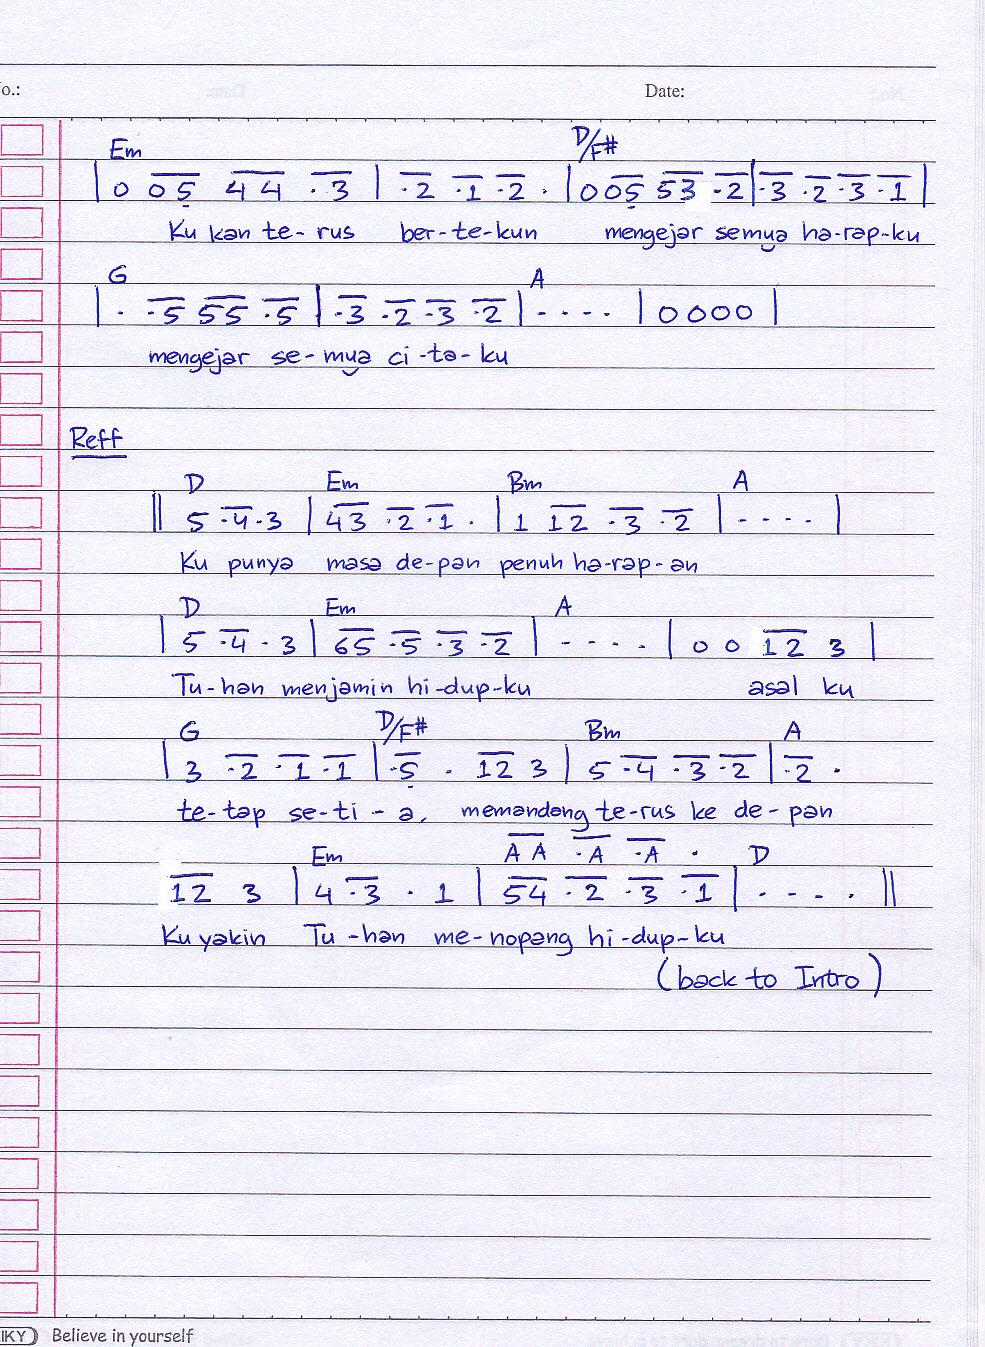 o.: Date:
Em D/F#
| 0 05 44 .3 | .2 .1 .2 . | 0 05 53 .2 | .3 .2 .3 .1 |
Ku kan te- rus ber-te-kun mengejar semua ha-rap-ku
G A
| . .5 55 .5 | .3 .2 .3 .2 | . . . . | 0 0 0 0 |
mengejar se-mua ci-ta-ku
Reff
D Em Bm A
|| 5 .4 . 3 | 43 .2 .1 . | 1 12 .3 .2 | . . . . |
Ku punya masa de-pan penuh ha-rap-an
D Em A
| 5 .4 . 3 | 65 .5 .3 .2 | . . . . | 0 0 12 3 |
Tu-han menjamin hi-dup-ku asal ku
G D/F# Bm A
| 3 .2 .1 .1 | .5 . 12 3 | 5 .4 .3 .2 | .2 .
te-tap se-ti-a, memandang te-rus ke de-pan
Em A A .A .A . D
12 3 | 4 .3 . 1 | 54 .2 .3 .1 | . . . . ||
Ku yakin Tu-han me-nopang hi-dup-ku
(back to Intro)
IKY Believe in yourself